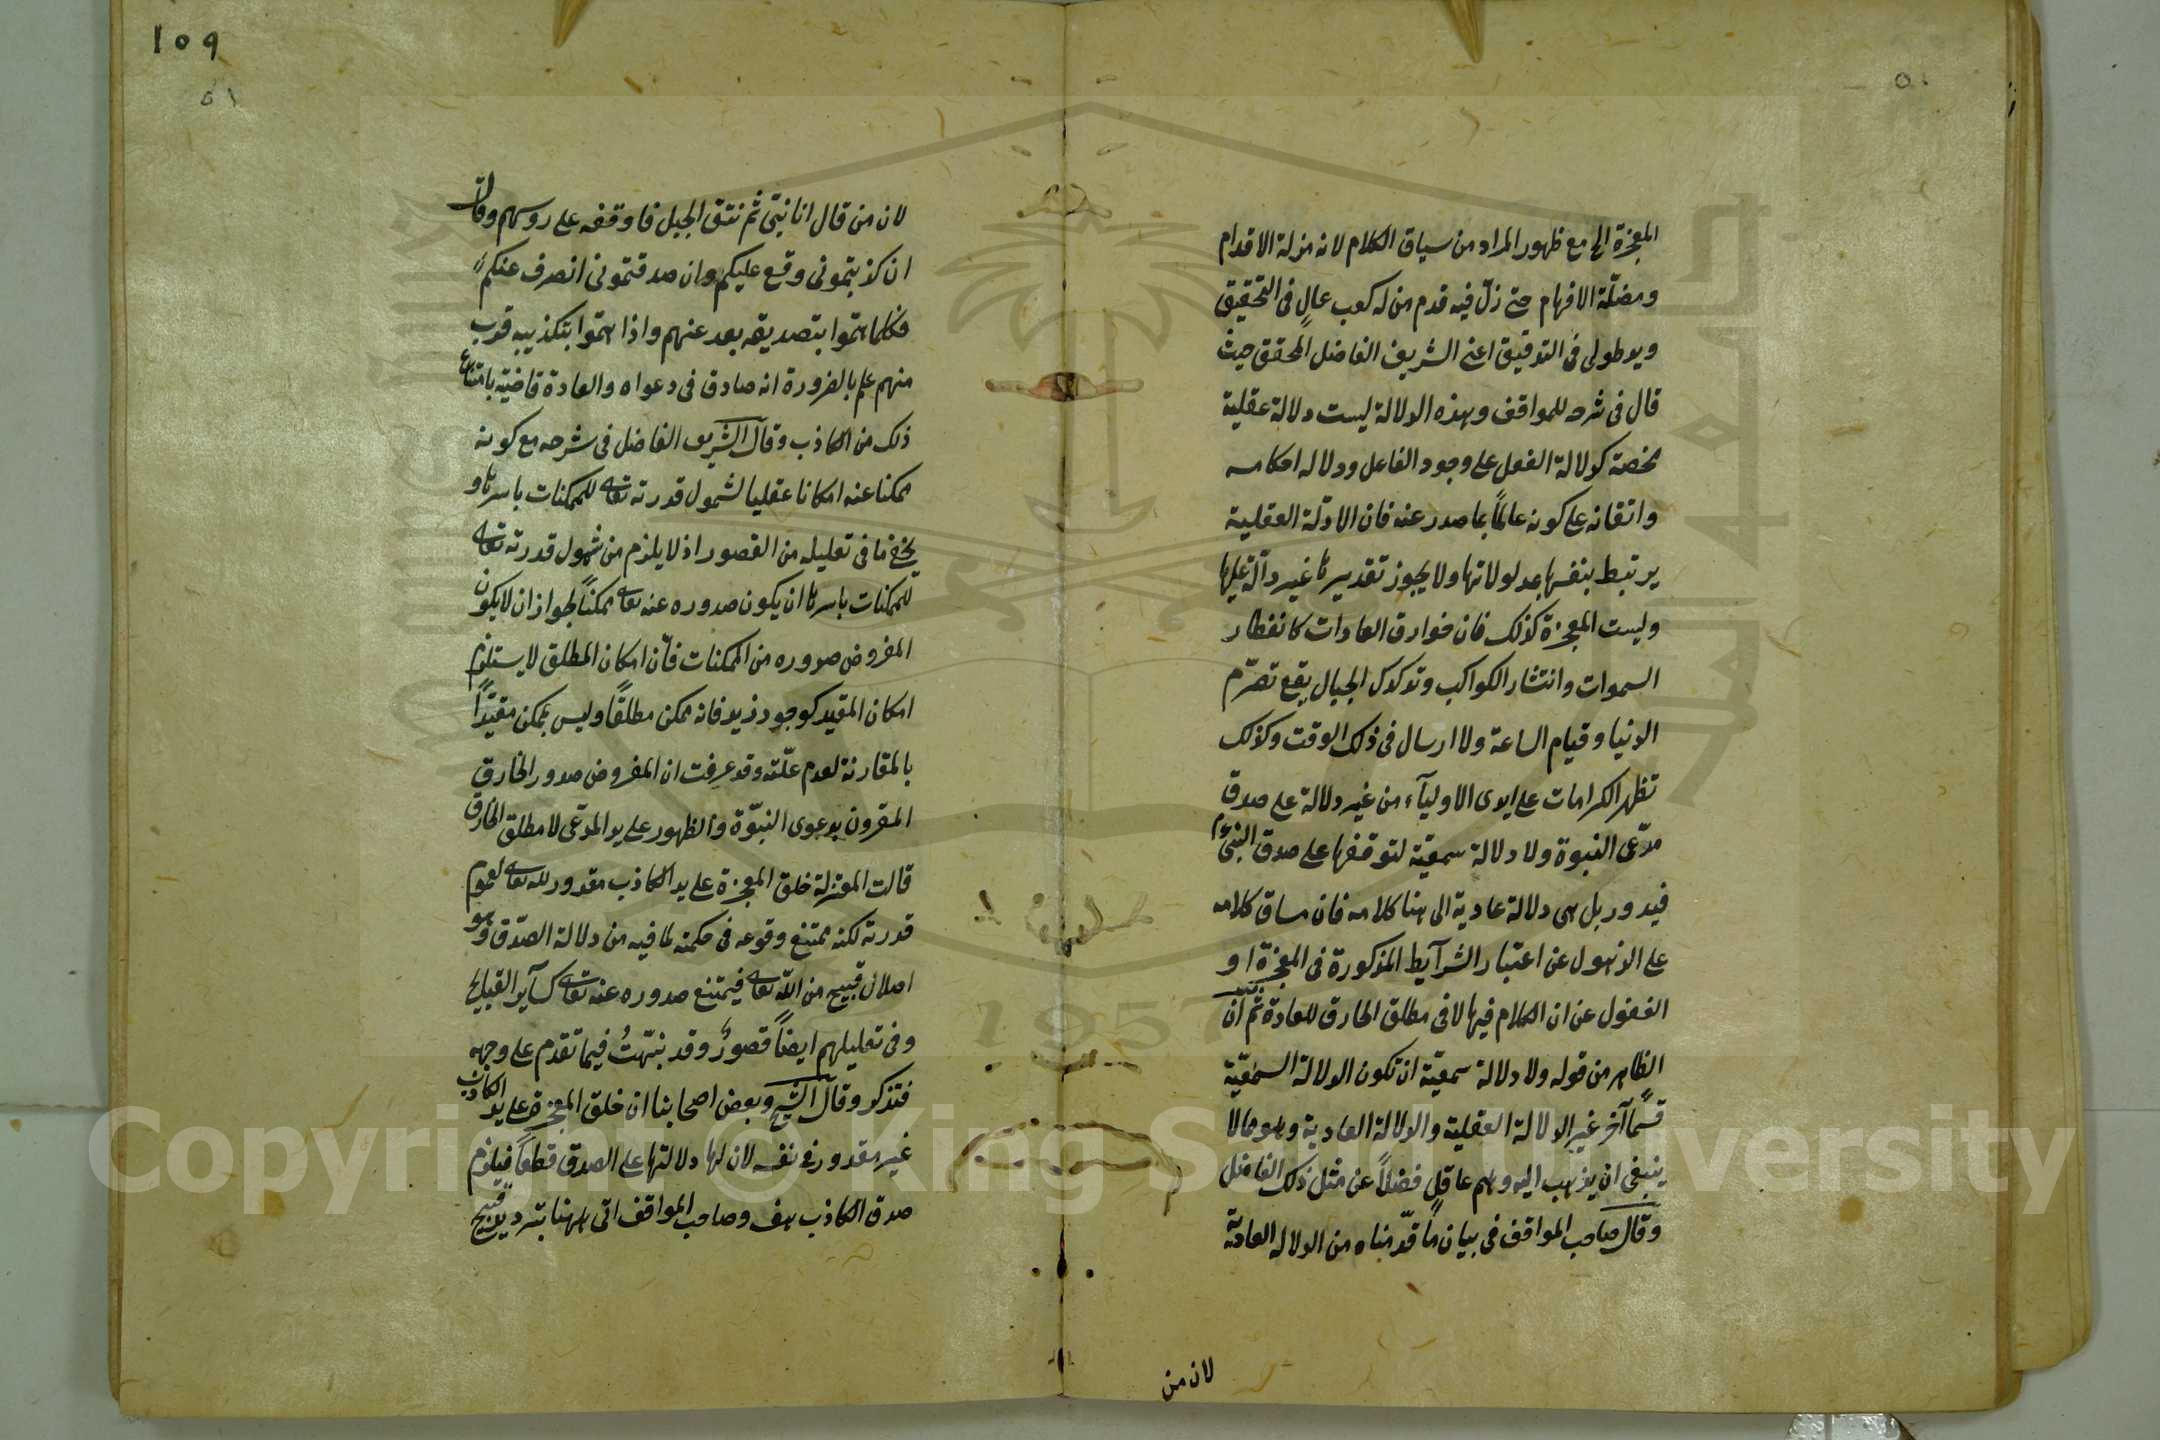 المعجزة الخ مع ظهور المراد من سياق الكلام لانه مزلة الاقدام
ومضلّة الافهام حتى زلّ فيه قدم من له كعب عالٍ فى التحقيق
ويد طولى فى التوفيق اعنى الشريف الفاضل المحقق حيث
قال فى شرحه للمواقف وهذه الدلالة ليست دلالة عقلية
محضة كدلالة الفعل على وجود الفاعل ودلاله احكامه
واتقانه على كونه عالماً بما صدر عنه فان الادلّة العقلية
يرتبط بنفسها بمدلولاتها ولا يجوز تقديرها غير دالّة عليها
وليست المعجزة كذلك فان خوارق العادات كانفطار
السموات وانتثار الكواكب وتدكدك الجبال يقع تصرّم
الدنيا وقيام الساعة ولا ارسال فى ذلك الوقت وكذلك
تظهر الكرامات على ايدى الاوليآء من غير دلالة على صدق
مدّعى النبوة ولا دلالة سمعيّة لتوقفها على صدق النبىّ م
فيدور بل هى دلالة عادية الى هنا كلامه فان مساق كلامه
على الذهول عن اعتبار الشرآيط المذكورة فى المعجزة او
الغفول عن ان الكلام فيها لا فى مطلق الخارق للعادة ثم ان
الظاهر من قوله ولا دلالة سمعيّة ان تكون الدلالة السمعيّة
قسماً آخر غير الدلالة العقلية والدلالة العادية وهو مما لا
ينبغى ان يذهب اليه وهم عاقلٍ فضلاً عن مثل ذلك الفاضل
وقال صاحب المواقف فى بيان ما قدّمناه من الدلاله العاديّة
لان من
١٥٩
٥١
لان من قال انا نبىّ ثم نتق الجبل فاوقفه على روسهم وقال
ان كذبتمونى وقع عليكم وان صدقتمونى انصرف عنكم
فكلما همّوا بتصديقه بعد عنهم واذا همّوا بتكذيبه قرب
منهم علم بالضرورة انه صادق فى دعواه والعادة قاضية بامتناع
ذلك من الكاذب وقال الشريف الفاضل فى شرحه مع كونه
ممكنا عنه امكانا عقليا لشمول قدرته تعالى للممكنات باسرها و
يخفى ما فى تعليله من القصور اذ لا يلزم من شمول قدرته تعالى
للممكنات باسرها ان يكون صدوره عنه تعالى ممكناً لجواز ان لا يكون
المفروض صدوره من الممكنات فانّ امكان المطلق لا يستلزم
امكان المقيد كوجود زيد فانه ممكن مطلقاً وليس بممكن مقيّداً
بالمقارنة لعدم علّته وقد عرفت ان المفروض صدور الخارق
المقرون بدعوى النبوّة والظهور على يد المدّعى لا مطلق الخارق
قالت المعتزلة خلق المعجزة على يد الكاذب مقدور لله تعالى لعموم
قدرته لكنه ممتنع وقوعه فى حكمته لما فيه من دلالة الصّدق وهو
اضلال قبيح من الله تعالى فيمتنع صدوره عنه تعالى كسآير القبايح
وفى تعليلهم ايضاً قصورٌ وقد نبّهتُ فيما تقدم على وجهه
فتذكر وقال الشيخ وبعض اصحابنا ان خلق المعجزة على يد الكاذب
غير مقدور فى نفسه لان لها دلالتها على الصدق قطعاً فيلزم
صدق الكاذب هف وصاحب المواقف اتى ههنا بترديد قبيح
Copyright © King Saud University
1957